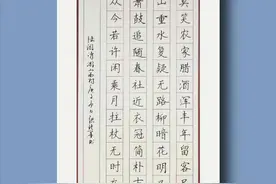 莫笑农家腊酒浑丰年留客足
山重水复疑无路柳暗花明又
箫鼓追随春社近衣冠简朴古
从今若许闲乘月拄杖无时夜
陆游诗游山西村庚子年